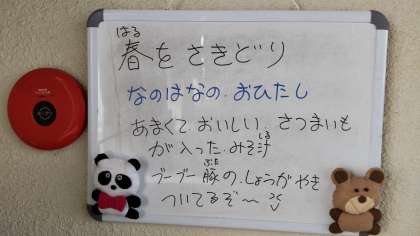 はる
春を さきどり
なのはなの おひたし
あまくて おいしい さつまいも
が入った みそ汁
しる
ブーブー豚の しょうがやき
ぶた
ついてるぞ〜